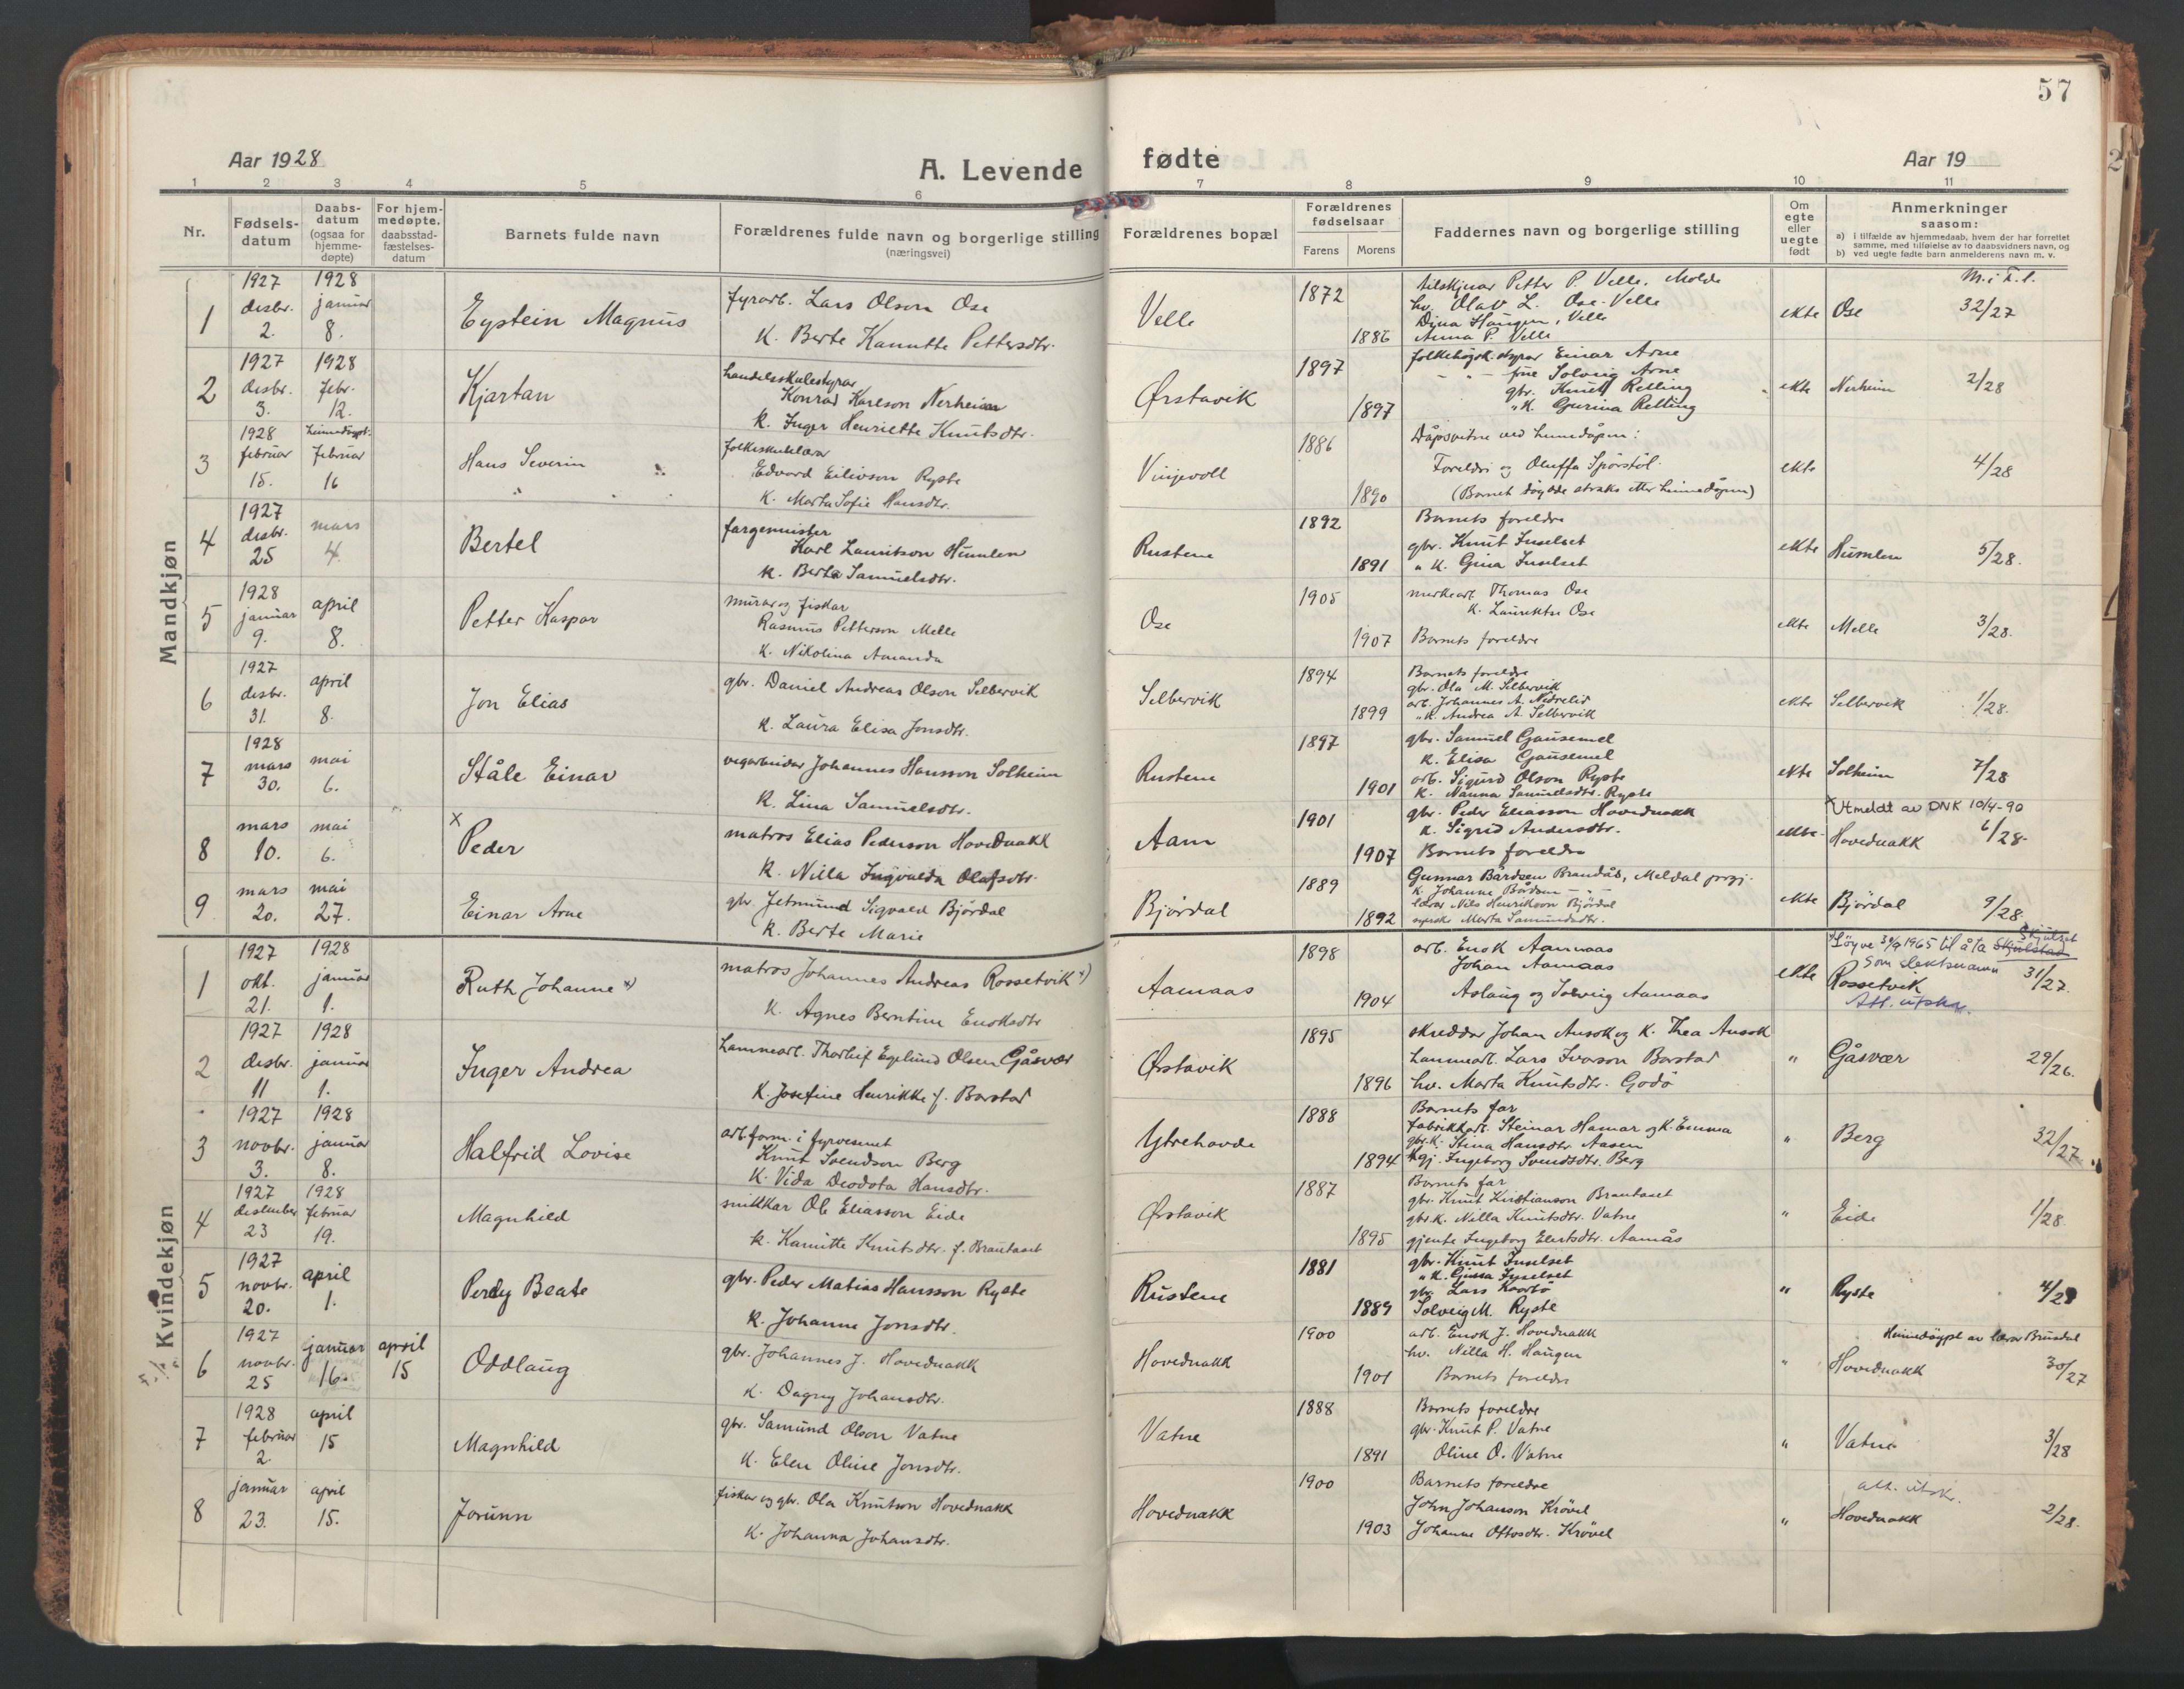 57
Aar 1928
A. Levende fødte
Aar 19
1 2 3 4 5 6 7 8 9 10 11
Nr.
Fødsels-datum
Daabs-datum (ogsaa for hjemme-døpte)
For hjem-medøpte. daabsstad-fæstelses-datum
Barnets fulde navn
Forældrenes fulde navn og borgerlige stilling (næringsvei)
Forældrenes bopæl
Forældrenes fødselsaar
Farens Morens
Faddernes navn og borgerlige stilling
Om egte eller uegte født
Anmerkninger saasom:
a) i tilfælde av hjemmedaab, hvem der har forrettet samme, med tilføielse av to daabsvidners navn, og
b) ved uegte fødte barn anmelderens navn m. v.
Mandkjøn
M. i T. l.
1
1927 desbr. 2.
1928 januar 8.
Eystein Magnus
fyrarb. Lars Olson Ose
K. Berte Kanutte Pettersdtr.
Velle
1872
1886
Petter P. Velle, Molde
hv. Olav L. Ose-Velle
Dina Haugen, Velle
Anna P. Velle
ekte
Ose
32/27
2
1927 desbr. 3.
1928 febr. 12.
Kjartan
handelsskulestyrar
Konrad Karlson Nerheim
K. Inger Henriette Knutsdtr.
Ørstavik
1897
1897
folkehøgsk.styrar Einar Arne
- " - frue Solveig Arne
gbr. Knut Retling
" K. Gurina Retling
ekte
Nerheim
2/28
3
1928 februar 15.
heimedøypt. februar 16
Hans Severin
folkeskulelærar
Edvard Eilivson Ryste
K. Marta Sofie Hansdtr.
Vinjevoll
1886
1890
Dåpsvitne ved heimedåpen:
Foreldri og Oluffa Sporstøl.
(Barnet døydde straks etter heimedåpen)
ekte
4/28
4
1927 desbr. 25
mars 4.
Bertel
fargemeister
Karl Lauritson Humlen
K. Berta Samuelsdtr.
Rustene
1892
1891
Barnets foreldre
gbr. Knut Inselset
" K. Gina Inselset
ekte
Humlen
5/28.
5
1928 januar 9.
april 8.
Petter Kaspar
murar og fiskar
Rasmus Petterson Melle
K. Nikolina Amanda
Ose
1905
1907
Thomas Ose
K. Laurektse Ose
Barnets foreldre
ekte
Melle
3/28.
6
1927 desbr. 31.
april 8.
Jon Elias
gbr. Daniel Andreas Olson Selbervik
K. Laura Elisa Jonsdtr.
Selbervik
1894
1899
Barnets foreldre
gbr. Ola M. Selbervik
arb. Johannes A. Nedrelid
"K. Andrea A. Selbervik
ekte
Selbervik
1/28.
7
1928 mars 30.
mai 6.
Ståle Einar
vegarbeidar Johannes Hansson Solheim
K. Lina Samuelsdtr.
Rustene
1897
1901
gbr. Samuel Gausemel
K. Elisa Gausemel
arb. Sigurd Olson Ryste
K. Nanna Samuelsdtr. Ryste
ekte
Solheim
7/28
8
mars 10.
mai 6.
x Peder
matros Elias Pederson Hovednakk
K. Nilla Ingvalda Olafsdtr.
Aam
1901
1907
gbr. Peder Eliasson Hovednakk
K. Sigrid Andersdtr.
Barnets foreldre
ekte
x Utmeldt av DNK 10/4-90
Hovednakk
6/28.
9
mars 20.
mai 27.
Einar Arne
gbr. Jetmund Sigvald Bjørdal
K. Berte Marie
Bjørdal
1889
1892
Gunnar Bårdsen Brandås, Meldal
K. Johanne Bårdsen - " -
lærar Nils Henrikson Bjørdal
Marta Samundsdtr.
ekte
Bjørdal
9/28
Kvindekjøn
1
1927 okt. 21.
1928 januar 1.
Ruth Johanne x)
matros Johannes Andreas Rossetvik x)
K. Agnes Berntine Enoksdtr
Aamaas
1898
1904
arb. Enok Aamaas
Johan Aamaas
Aslaug og Solveig Aamaas
ekte
x Løyve 30/9 1965 til å ta Skjulstad Skjulset
som slektsnamn
Rossetvik
31/27.
Att. utskr.
2
1927 desbr. 11
1928 januar 1.
Inger Andrea
Thorleif Egelund Olsen Gåsvær
K. Josefine Henrikke f. Barstad
Ørstavik
1895
1896
skreddar Johan Aasok og K. Thea Aasok
Lars Ivarson Barstad
hv. Marta Knutsdtr. Godø
"
Gåsvær
29/26.
3
1927 novbr. 3.
1928 januar 8.
Halfrid Lovise
arb.form. i fyrvesenet
Knut Svendson Berg
K. Vida Deodota Hansdtr.
Ytrehavde
1888
1894
Barnets far
fabrikkarb. Steinar Hamar og K. Emma
gbr.K. Stina Hansdtr. Aasen
gj. Ingeborg Svendsdtr. Berg
"
Berg
32/27
4
1927 desember 23
1928 februar 19.
Magnhild
snikkar Ole Eliasson Eide
K. Kanutte Knutsdtr. f. Brautaset
Ørstavik
1887
1895
Barnets far
gbr. Knut Kristianson Brautaset
gbr.K. Nilla Knutsdtr. Vatne
gjente Ingeborg Elertsdtr. Aamås
"
Eide
1/28.
5
1927 novbr. 20.
april 1.
Perdy Beate
gbr. Peder Matias Hansson Ryste
K. Johanne Jonsdtr.
Rustene
1881
1889
gbr. Knut Inselset
"K. Ginna Inselset
gbr. Lars Kaarbø
Solveig M. Ryste
"
Ryste
4/28
6
1927 novbr. 25
januar 16.
april 15
Oddlaug
gbr. Johannes J. Hovednakk
K. Dagny Johansdtr.
Hovednakk
1900
1901
arb. Enok J. Hovednakk
hv. Nilla H. Haugen
Barnets foreldre
"
Heimedøypt av lærar Brusdal
Hovednakk
30/27
7
1928 februar 2.
april 15
Magnhild
gbr. Samund Olson Vatne
K. Elen Oline Jonsdtr.
Vatne
1888
1891
Barnets foreldre
gbr. Knut P. Vatne
Oline O. Vatne
"
Vatne
3/28
8
januar 23.
april 15.
Jorunn
fiskar og gbr. Ola Knutson Hovednakk
K. Johanna Johansdtr.
Hovednakk
1900
1903
Barnets foreldre
John Johanson Krøvel
Johanne Ottosdtr. Krøvel
"
att. utskr.
Hovednakk
2/28.